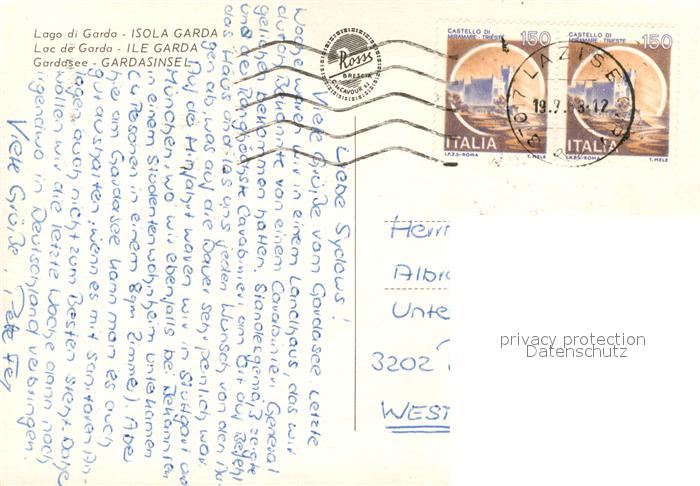 Lago di Garda - ISOLA GARDA
Lac de Garda - ILE GARDA
Gardasee - GARDASINSEL
Ross
BRESCIA
C.M. CAVOUR 41
CASTELLO DI
MIRAMARE - TRIESTE
150
ITALIA
I.P.Z.S.-ROMA T. MELE
CASTELLO DI
MIRAMARE - TRIESTE
150
ITALIA
I.P.Z.S.-ROMA T. MELE
LAZISE
19.7.
Liebe Sydows!
Viele Grüße vom Gardasee. Letzte
Woche waren wir in einem Landhaus, das wir
durch Bekannte von einem Carabinieri General
geliehen bekommen hatten. Standesgemäß zeigte
uns der Ranghöchste Carabinieri am Ort auf Befehl
das Haus und las uns jeden Wunsch von den Au-
gen ab, was auf die Dauer sehr peinlich war.
Auf der Hinfahrt waren wir in Stuttgart und
München, wo wir ebenfalls bei Bekannten
in einem Studentenwohnheim unterkamen
(4 Personen in einem 8qm Zimmer). Aber
hier am Gardasee kann man es auch
gut aushalten, wenn es mit sanitären An-
lagen auch nicht zum Besten steht. Daher
wollen wir die letzte Woche dann noch
irgendwo in Deutschland verbringen.
Viele Grüße,
Herrn
Albr
Unte
3202
WEST
privacy protection
Datenschutz